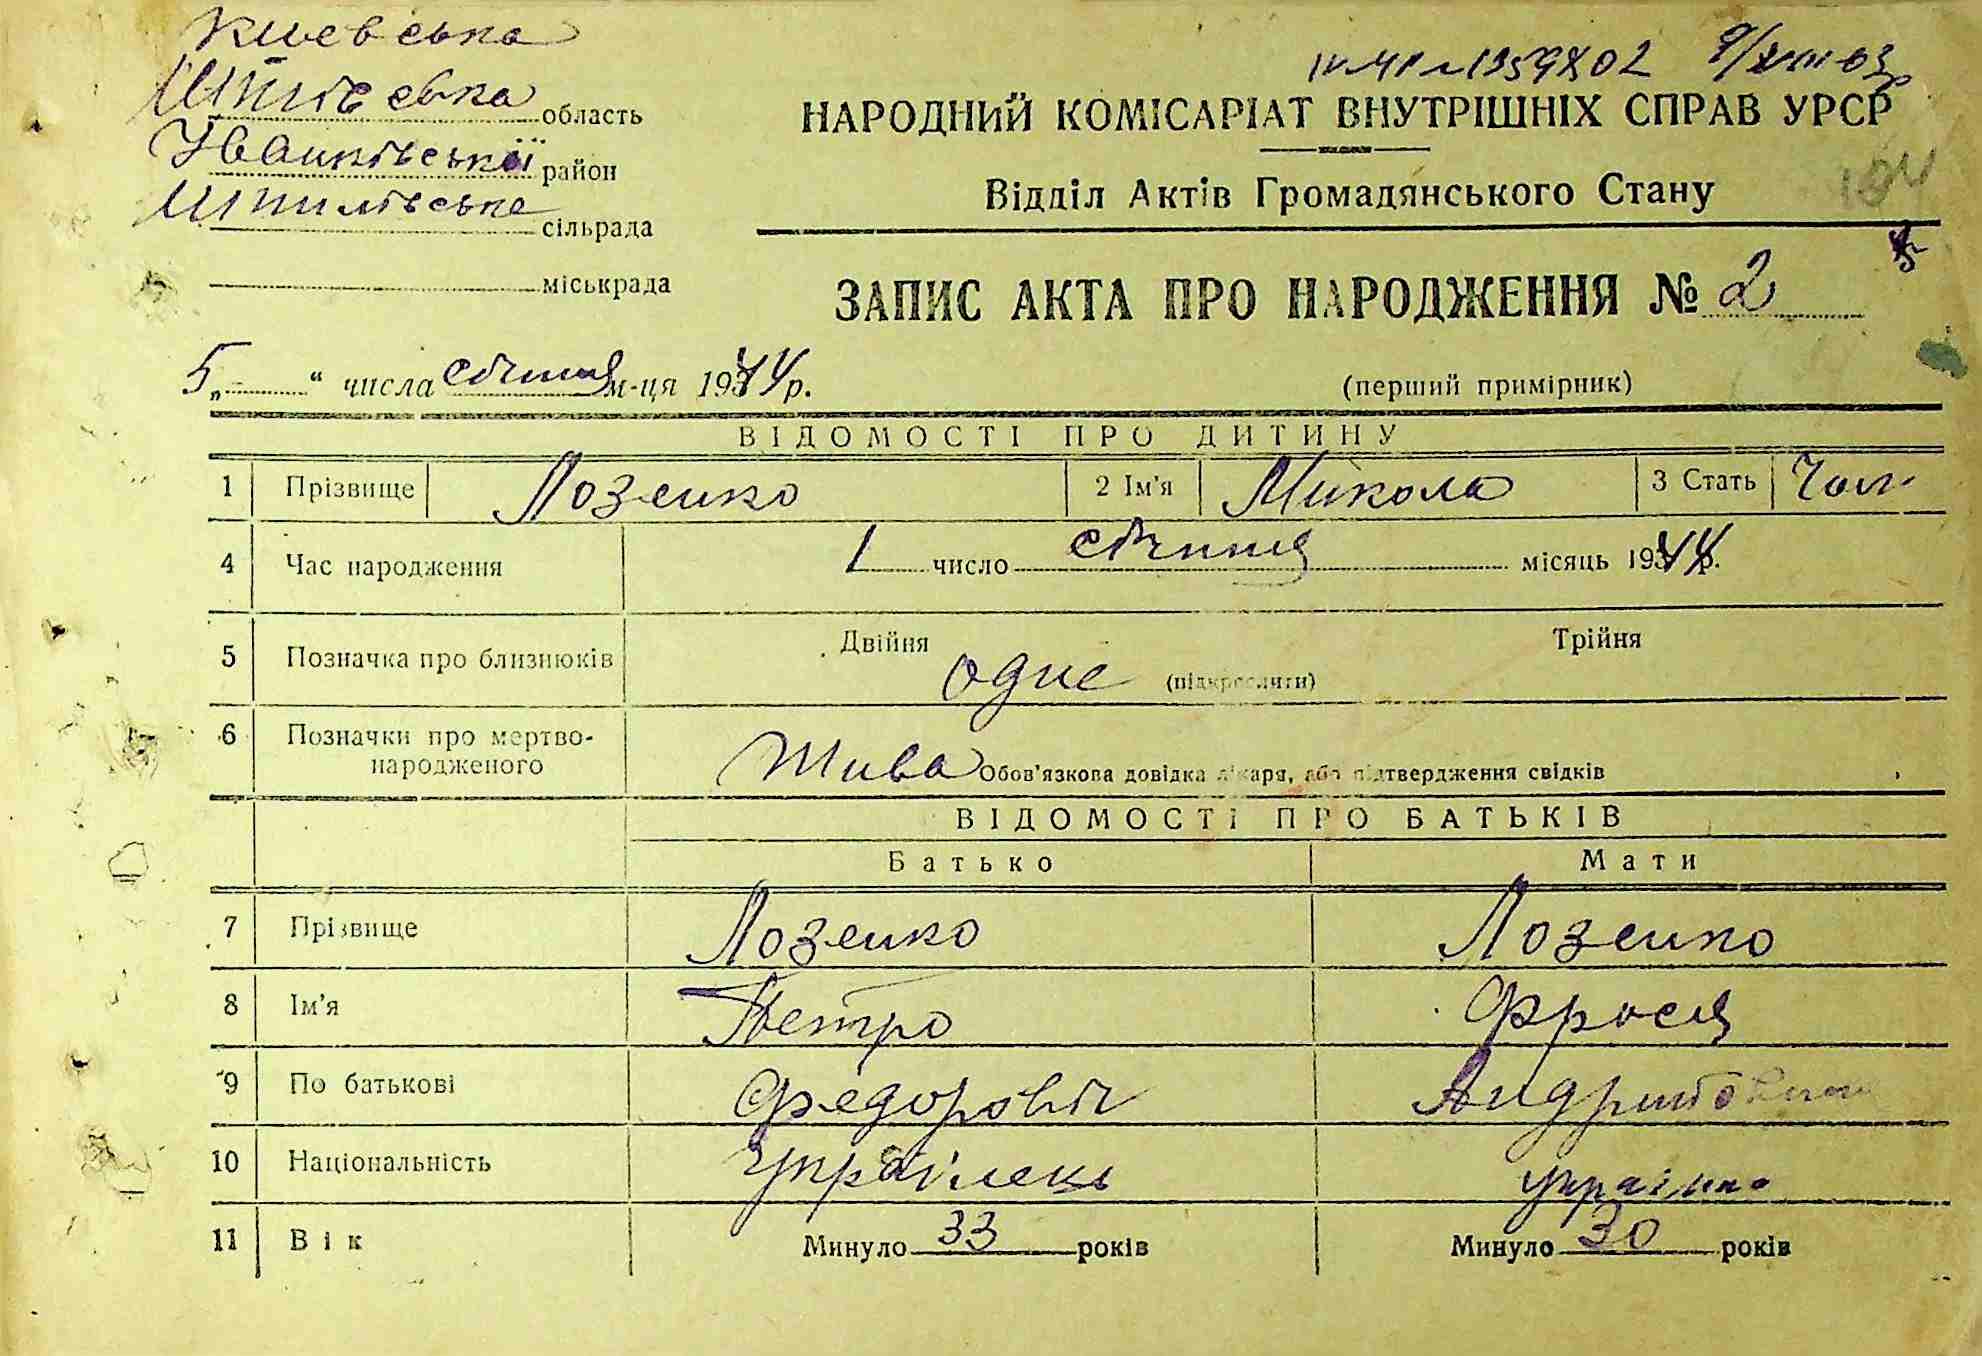 Киевська
область
Іванківської район
Шпилівська сільрада
міськрада
НАРОДНИЙ КОМІСАРІАТ ВНУТРІШНІХ СПРАВ УРСР
Відділ Актів Громадянського Стану
ЗАПИС АКТА ПРО НАРОДЖЕННЯ № 2
5 „ “ числа січння м-ця 1944 р.
(перший примірник)
ВІДОМОСТІ ПРО ДИТИНУ
1 Прізвище Лозенко 2 Ім'я Микола 3 Стать Чол.
4 Час народження 1 число січння місяць 1944 р.
5 Позначка про близнюків Двійня Трійня
одне (підкреслити)
6 Позначки про мертвонародженого Жива Обов'язкова довідка лікаря, або підтвердження свідків
ВІДОМОСТІ ПРО БАТЬКІВ
Батько Мати
7 Прізвище Лозенко Лозенко
8 Ім'я Петро Фрося
9 По батькові Федоровіч
10 Національність Українець українка
11 Вік Минуло 33 років Минуло 30 років